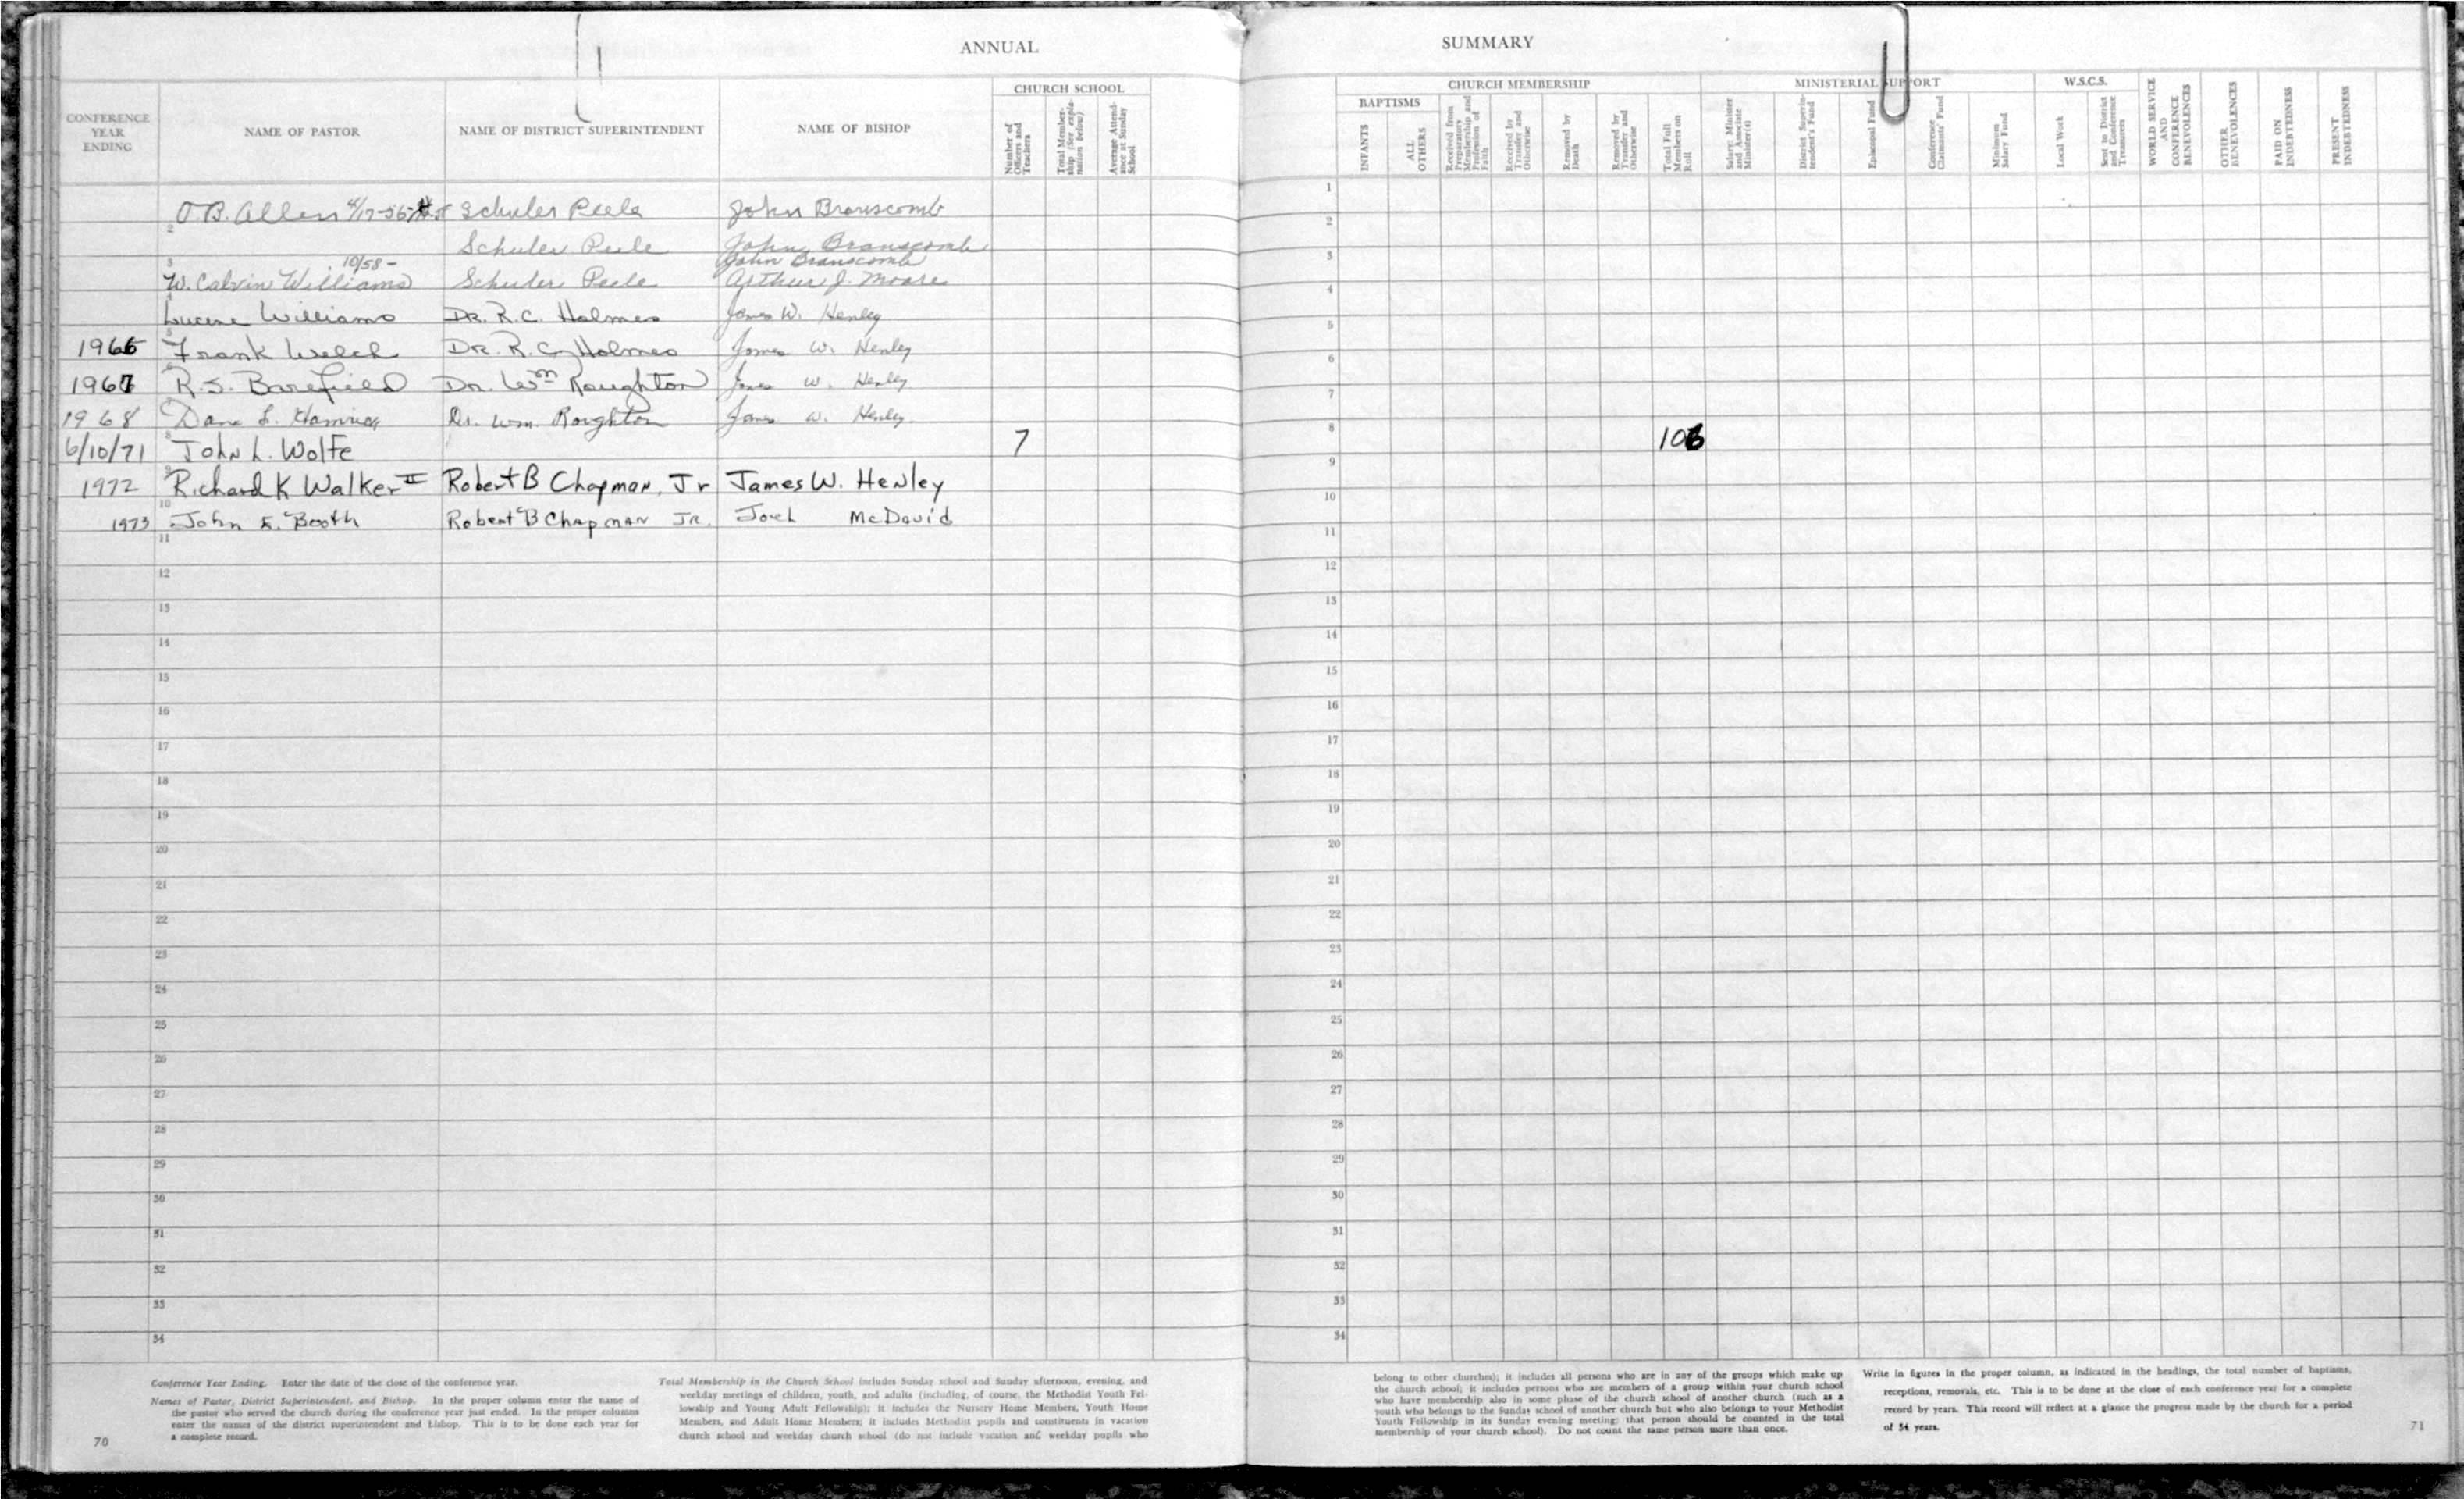 ANNUAL
CONFERENCE YEAR ENDING
NAME OF PASTOR
NAME OF DISTRICT SUPERINTENDENT
NAME OF BISHOP
CHURCH SCHOOL
Number of Officers and Teachers
Total Membership (See explanation below)
Average Attendance at Sunday School
O.B. Allen 4/17-56 Schuler Peele John Branscomb
2 Schuler Peele John Branscomb
10/58- John Branscomb
3 W. Calvin Williams Schuler Peele Arthur J. Moore
4 Lucene Williams Dr. R.C. Holmes James W. Henley
1966 5 Frank Welch Dr. R.C. Holmes James W. Henley
1967 6 R.S. Barefield Dr. Wm Roughton James W. Henley
1968 7 Dane L. Dr. Wm. Roughton James W. Henley
6/10/71 8 John L. Wolfe 7
1972 9 Richard K Walker II Robert B Chapman, Jr James W. Henley
1973 10 John E. Booth Robert B Chapman Jr. Joel McDavid
11
12
13
14
15
16
17
18
19
20
21
22
23
24
25
26
27
28
29
30
31
32
33
34
Conference Year Ending. Enter the date of the close of the conference year.
Names of Pastor, District Superintendent, and Bishop. In the proper column enter the name of
the pastor who served the church during the conference year just ended. In the proper columns
enter the names of the district superintendent and bishop. This is to be done each year for
a complete record.
Total Membership in the Church School includes Sunday school and Sunday afternoon, evening, and
weekday meetings of children, youth, and adults (including, of course, the Methodist Youth Fel-
lowship and Young Adult Fellowship); it includes the Nursery Home Members, Youth Home
Members, and Adult Home Members; it includes Methodist pupils and constituents in vacation
church school and weekday church school (do not include vacation and weekday pupils who
70
SUMMARY
CHURCH MEMBERSHIP
BAPTISMS
INFANTS
ALL OTHERS
Received from Preparatory Membership and Profession of Faith
Received by Transfer and Otherwise
Removed by Death
Removed by Transfer and Otherwise
Total Full Members on Roll
MINISTERIAL SUPPORT
Salary: Minister and Associate Minister(s)
District Superintendent's Fund
Episcopal Fund
Conference Claimants' Fund
Minimum Salary Fund
W.S.C.S.
Local Work
Sent to District and Conference Treasurers
WORLD SERVICE AND CONFERENCE BENEVOLENCES
OTHER BENEVOLENCES
PAID ON INDEBTEDNESS
PRESENT INDEBTEDNESS
1
2
3
4
5
6
7
8 106
9
10
11
12
13
14
15
16
17
18
19
20
21
22
23
24
25
26
27
28
29
30
31
32
33
34
belong to other churches); it includes all persons who are in any of the groups which make up
the church school; it includes persons who are members of a group within your church school
who have membership also in some phase of the church school of another church (such as a
youth who belongs to the Sunday school of another church but who also belongs to your Methodist
Youth Fellowship in its Sunday evening meeting; that person should be counted in the total
membership of your church school). Do not count the same person more than once.
Write in figures in the proper column, as indicated in the headings, the total number of baptisms,
receptions, removals, etc. This is to be done at the close of each conference year for a complete
record by years. This record will reflect at a glance the progress made by the church for a period
of 34 years.
71